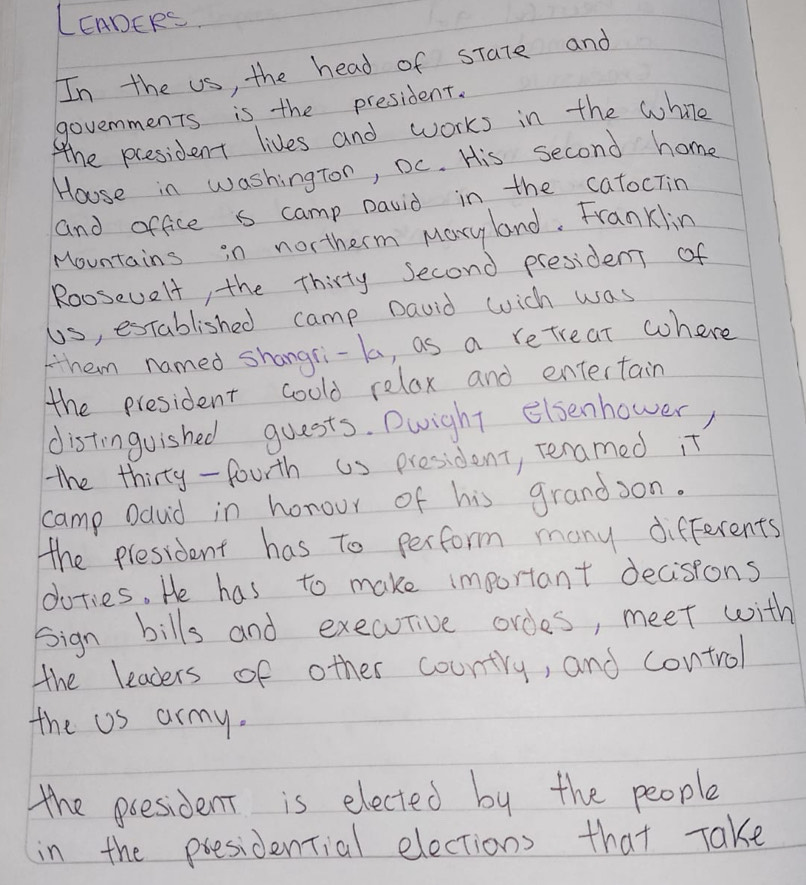 LEADERS.
In the us, the head of state and
govemments is the president.
the president lives and works in the while
House in washington, DC. His second home
and office is camp David in the catoctin
Mountains in northerm Maryland. Franklin
Roosevelt, the Thirty Second president of
us, established camp David wich was
them named Shangri-la, as a retreat where
the president could relax and entertain
distinguished guests. Dwight Elsenhower,
the thirty-fourth us president, renamed it
camp David in honour of his grandson.
the president has to perform many differents
duties. He has to make important decisions
Sign bills and executive ordes, meet with
the leaders of other country, and control
the US army.
the president is elected by the people
in the presidential elections that take